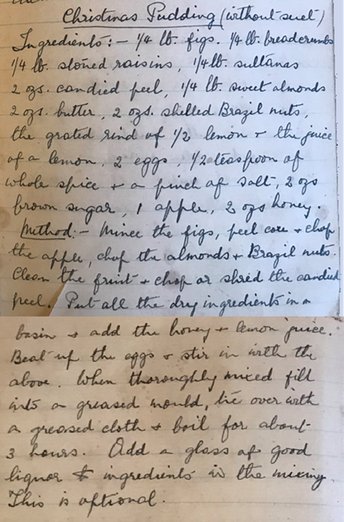 Christmas Pudding (without suet)
Ingredients:- 1/4 lb. figs. 1/4 lb. breadcrumbs
1/4 lb. stoned raisins, 1/4 lb. sultanas
2 ozs. candied peel, 1/4 lb. sweet almonds
2 ozs. butter, 2 ozs. shelled Brazil nuts,
the grated rind of 1/2 lemon + the juice
of a lemon, 2 eggs, 1/2 teaspoon of
whole spice + a pinch of salt, 2 ozs
brown sugar, 1 apple, 2 ozs honey.
Method:- Mince the figs, peel core + chop
the apple, chop the almonds + Brazil nuts.
Clean the fruit + chop or shred the candied
peel. Put all the dry ingredients in a
basin + add the honey + lemon juice.
Beat up the eggs + stir in with the
above. When thoroughly mixed fill
into a greased mould, tie over with
a greased cloth + boil for about
3 hours. Add a glass of good
liquor to ingredients in the mixing.
This is optional.